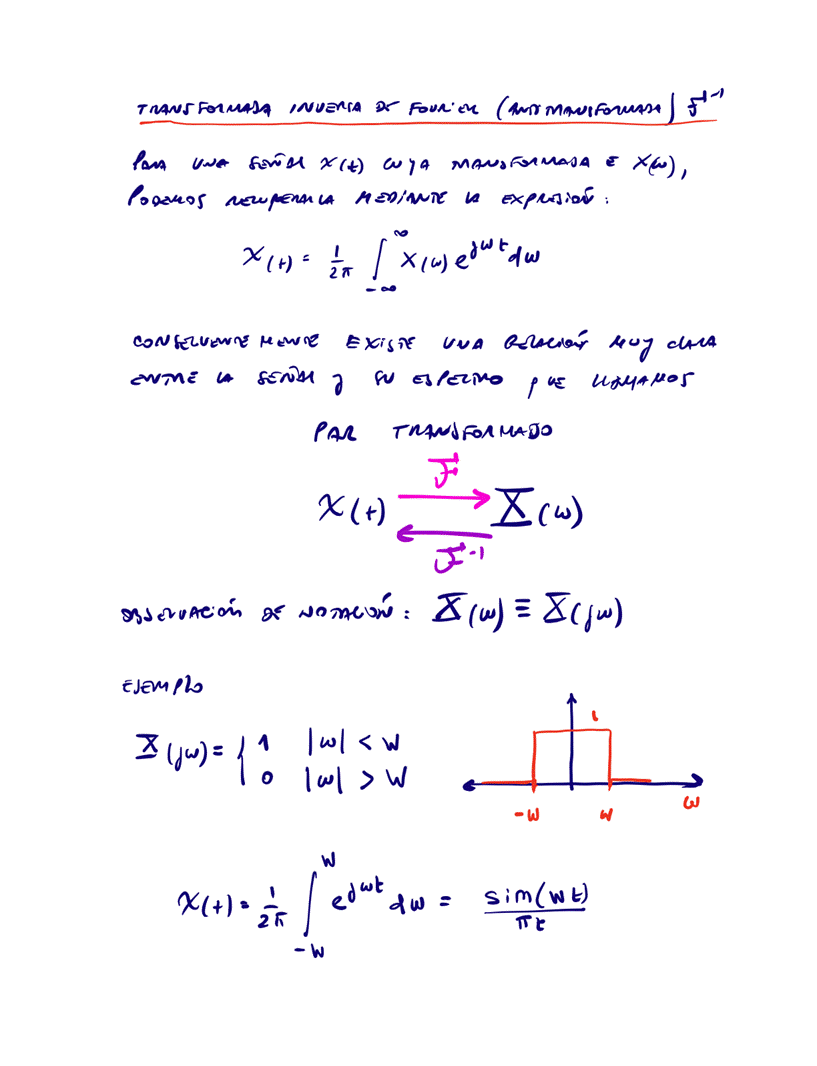 TRANSFORMADA INVERSA DE FOURIER (ANTITRANSFORMADA) F⁻¹
PARA UNA SEÑAL x(t) CUYA TRANSFORMADA E X(ω),
PODEMOS RECUPERARLA MEDIANTE LA EXPRESIÓN:
x(t) = 1/2π ∫_{-∞}^{∞} X(ω) e^{jωt} dω
CONSECUENTEMENTE EXISTE UNA RELACIÓN MUY CLARA
ENTRE LA SEÑAL y SU ESPECTRO QUE LLAMAMOS
PAR TRANSFORMADO
F
x(t) X(ω)
F⁻¹
OBSERVACIÓN DE NOTACIÓN: X(ω) ≡ X(jω)
EJEMPLO
X(jω) = { 1 |ω| < W
0 |ω| > W
1
-W W ω
x(t) = 1/2π ∫_{-W}^{W} e^{jωt} dω = sin(Wt)/πt